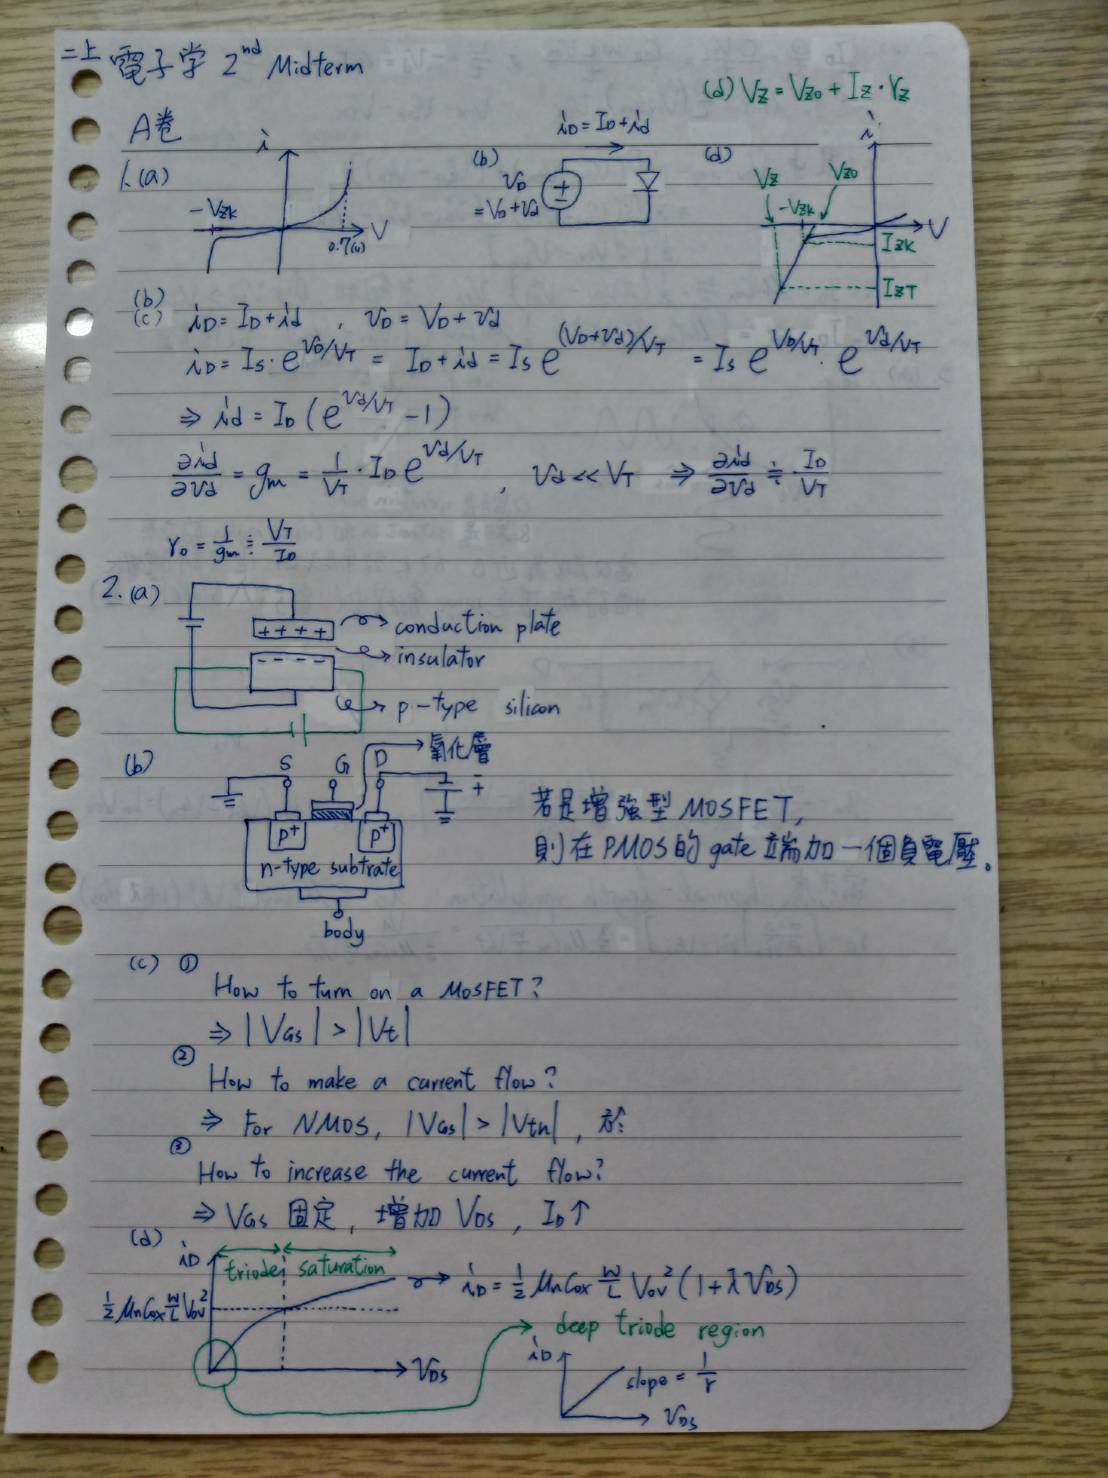 二上 電子学 2nd Midterm
(d) VZ = VZ0 + IZ · rZ
A卷
1. (a)
i
-VZK
V
0.7(v)
(b)
iD = ID + id
VD
= VD + Vd
(d)
i
VZ
VZ0
-VZK
V
IZK
IZT
(b)
(c) iD = ID + id , vD = VD + vd
iD = IS · e^(VD/VT) = ID + id = IS e^((VD+Vd)/VT) = IS e^(VD/VT) · e^(Vd/VT)
⇒ id = ID (e^(Vd/VT) - 1)
∂id/∂vd = gm = 1/VT · ID e^(Vd/VT) , Vd << VT ⇒ ∂id/∂vd ≒ ID/VT
ro = 1/gm ≒ VT/ID
2. (a)
+ + + +
conduction plate
- - - -
insulator
p-type silicon
(b)
氧化層
S G D
- +
p+ p+
n-type subtrate
body
若是增強型 MOSFET,
則在 PMOS 的 gate 端加一個負電壓。
(c) ①
How to turn on a MOSFET?
⇒ |VGS| > |Vt|
②
How to make a current flow?
⇒ For NMOS, |VGS| > |Vtn| , 於
③
How to increase the current flow?
⇒ VGS 固定, 增加 VDS , ID↑
(d)
iD
triode saturation
iD = 1/2 μnCox W/L Vov² (1 + λVDS)
1/2 μnCox W/L Vov²
VDS
deep triode region
iD
slope = 1/r
VDS